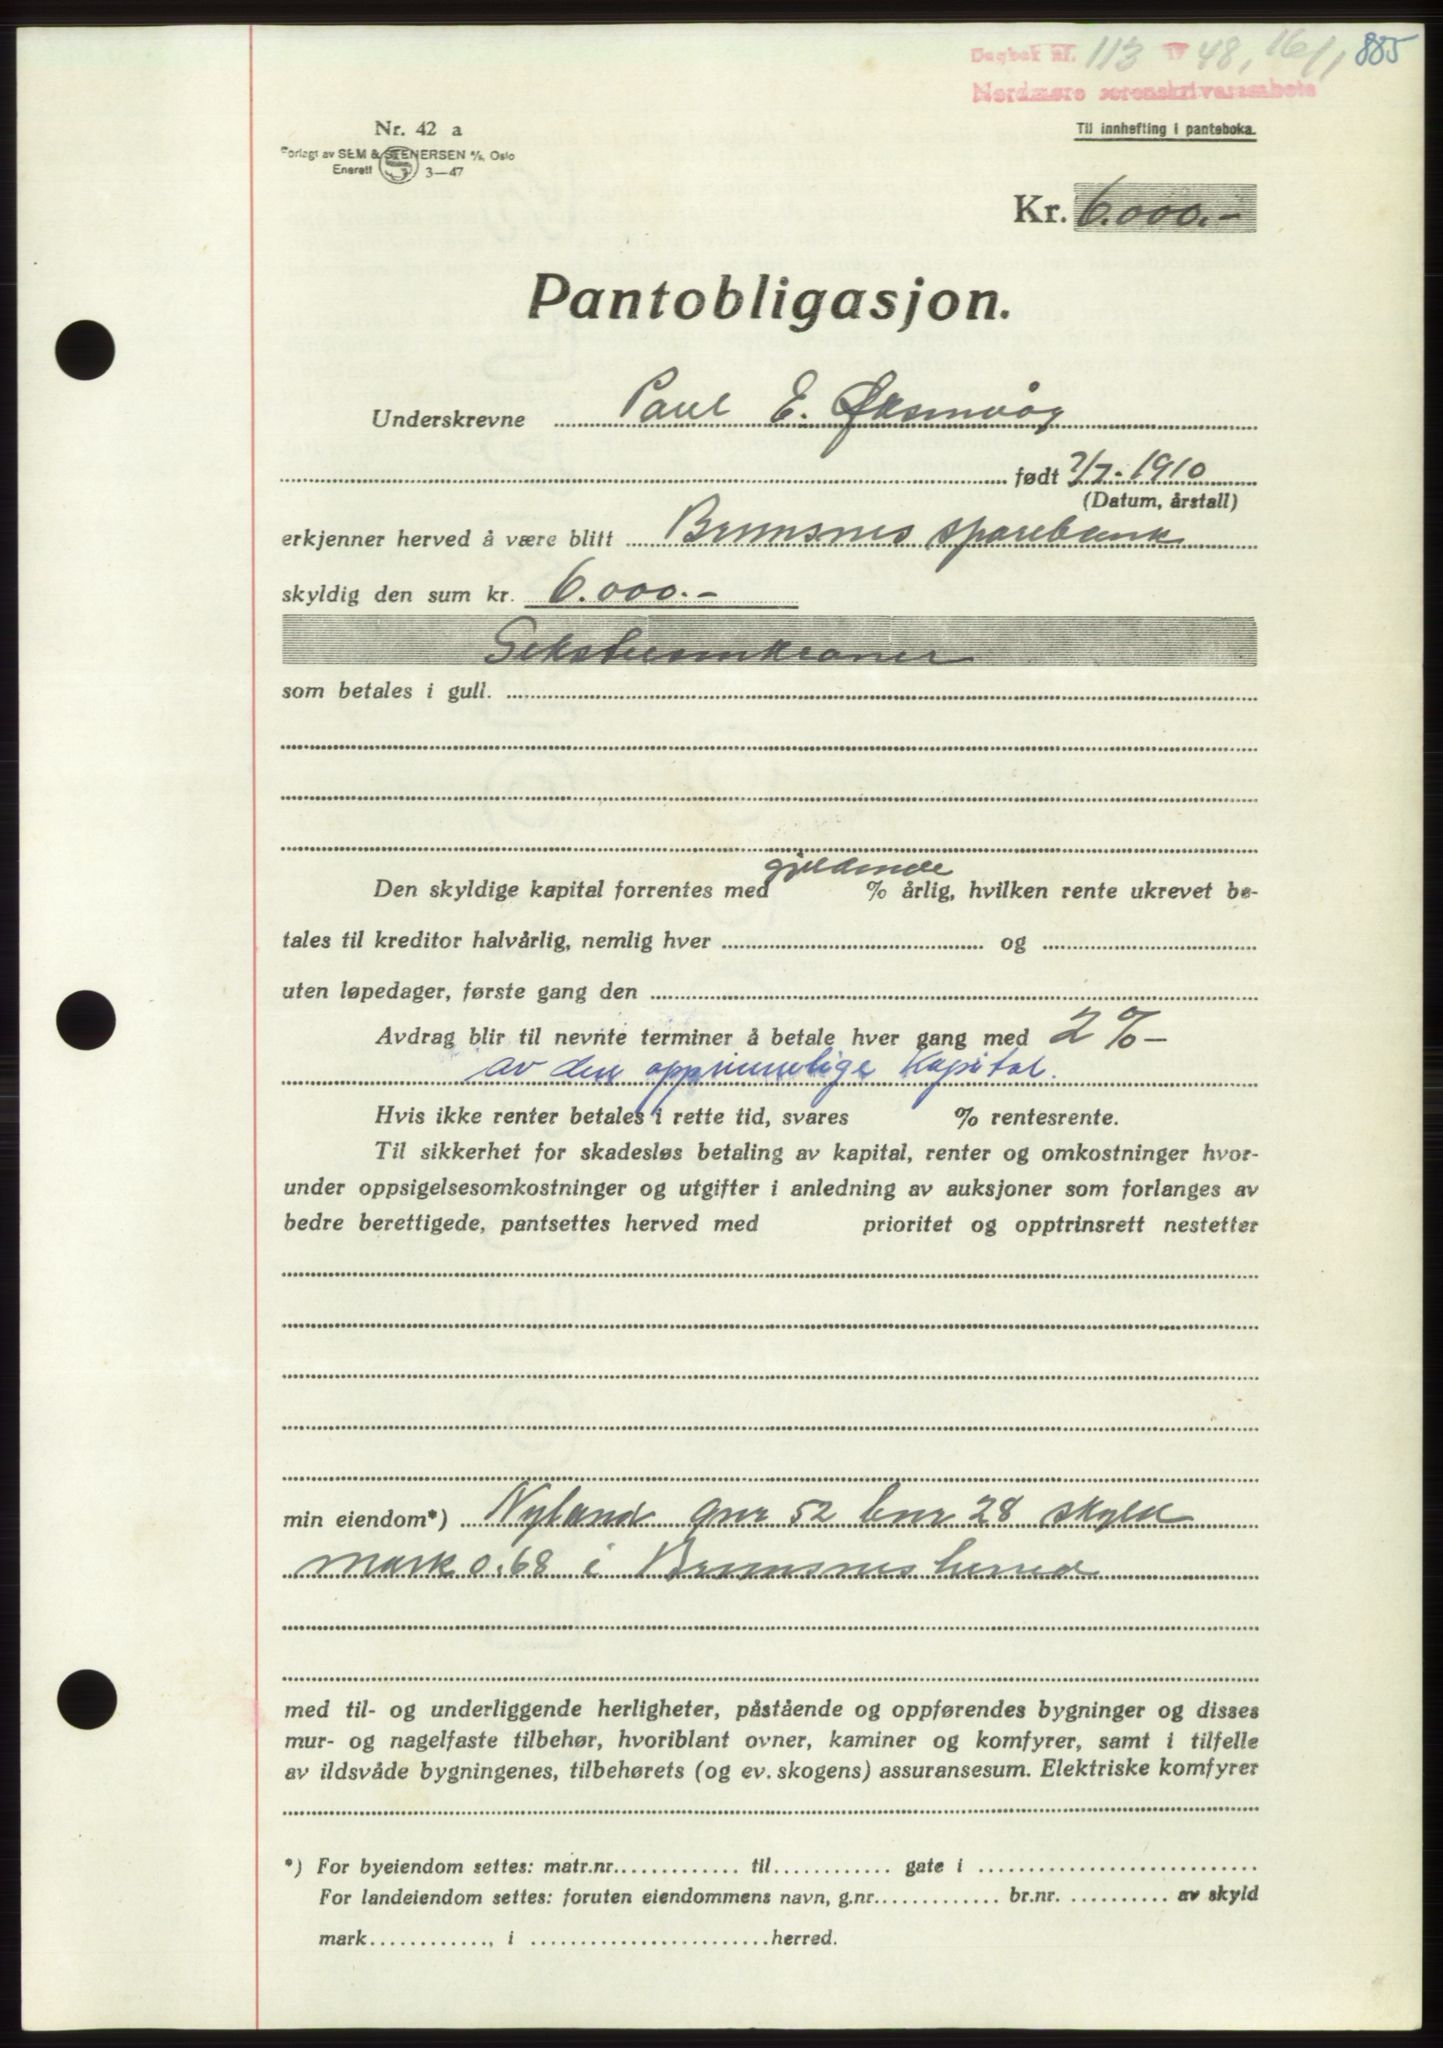 Dagbok nr. 113 19 48, 16/1 885
Nordmøre sorenskriverembete
Nr. 42 a
Til innhefting i panteboka.
Forlagt av SEM & STENERSEN A/S, Oslo
Enerett 3—47
Kr. 6.000.-
Pantobligasjon.
Underskrevne Paul E. Øksenvåg
født 7/7-1910
(Datum, årstall)
erkjenner herved å være blitt Bremsnes sparebank
skyldig den sum kr. 6.000.-
Sekstusenkroner
som betales i gull.
gjeldende
Den skyldige kapital forrentes med % årlig, hvilken rente ukrevet be-
tales til kreditor halvårlig, nemlig hver og
uten løpedager, første gang den
Avdrag blir til nevnte terminer å betale hver gang med 2 % -
av den opprinnelige kapital.
Hvis ikke renter betales i rette tid, svares % rentesrente.
Til sikkerhet for skadesløs betaling av kapital, renter og omkostninger hvor-
under oppsigelsesomkostninger og utgifter i anledning av auksjoner som forlanges av
bedre berettigede, pantsettes herved med prioritet og opptrinsrett nestetter
min eiendom*) Nyland gnr 52 bnr 28 skyld
mark 0.68 i Bremsnes herred
med til- og underliggende herligheter, påstående og oppførendes bygninger og disses
mur- og nagelfaste tilbehør, hvoriblant ovner, kaminer og komfyrer, samt i tilfelle
av ildsvåde bygningenes, tilbehørets (og ev. skogens) assuransesum. Elektriske komfyrer
*) For byeiendom settes: matr.nr. til gate i
For landeiendom settes: foruten eiendommens navn, g.nr. br.nr. av skyld
mark , i herred.